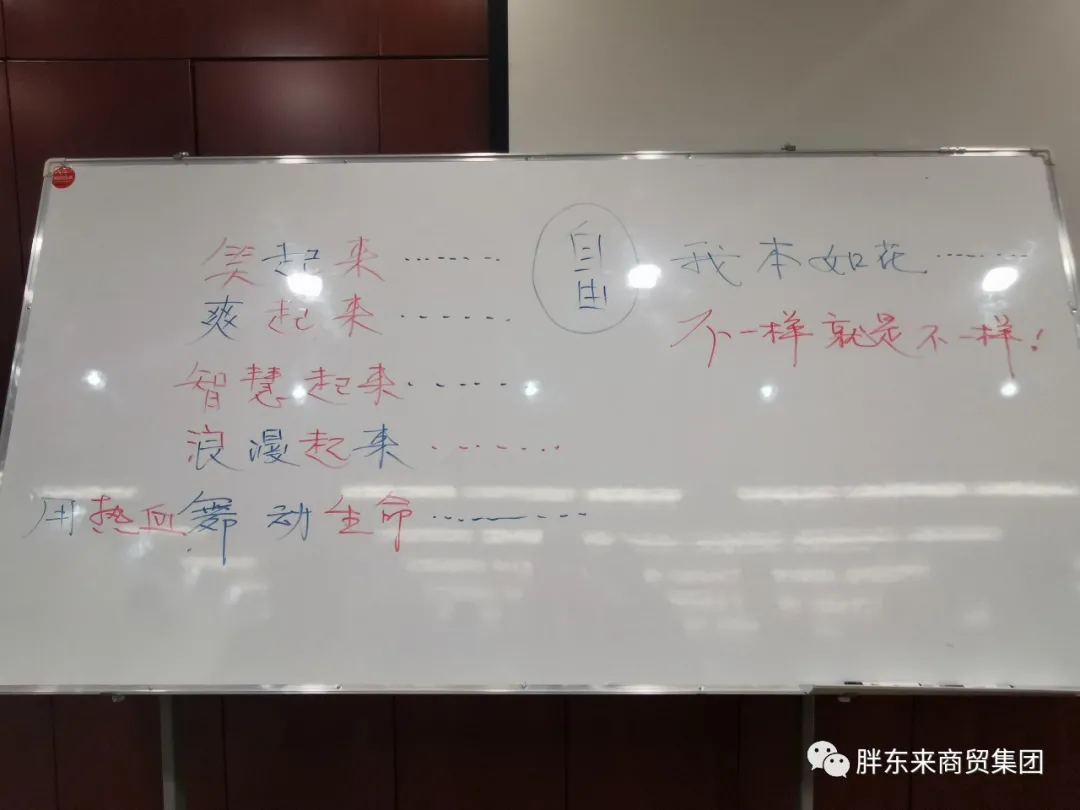 笑起来……
爽起来……
智慧起来……
浪漫起来……
用热血舞动生命……
自由
我本如花……
不一样就是不一样！
胖东来商贸集团